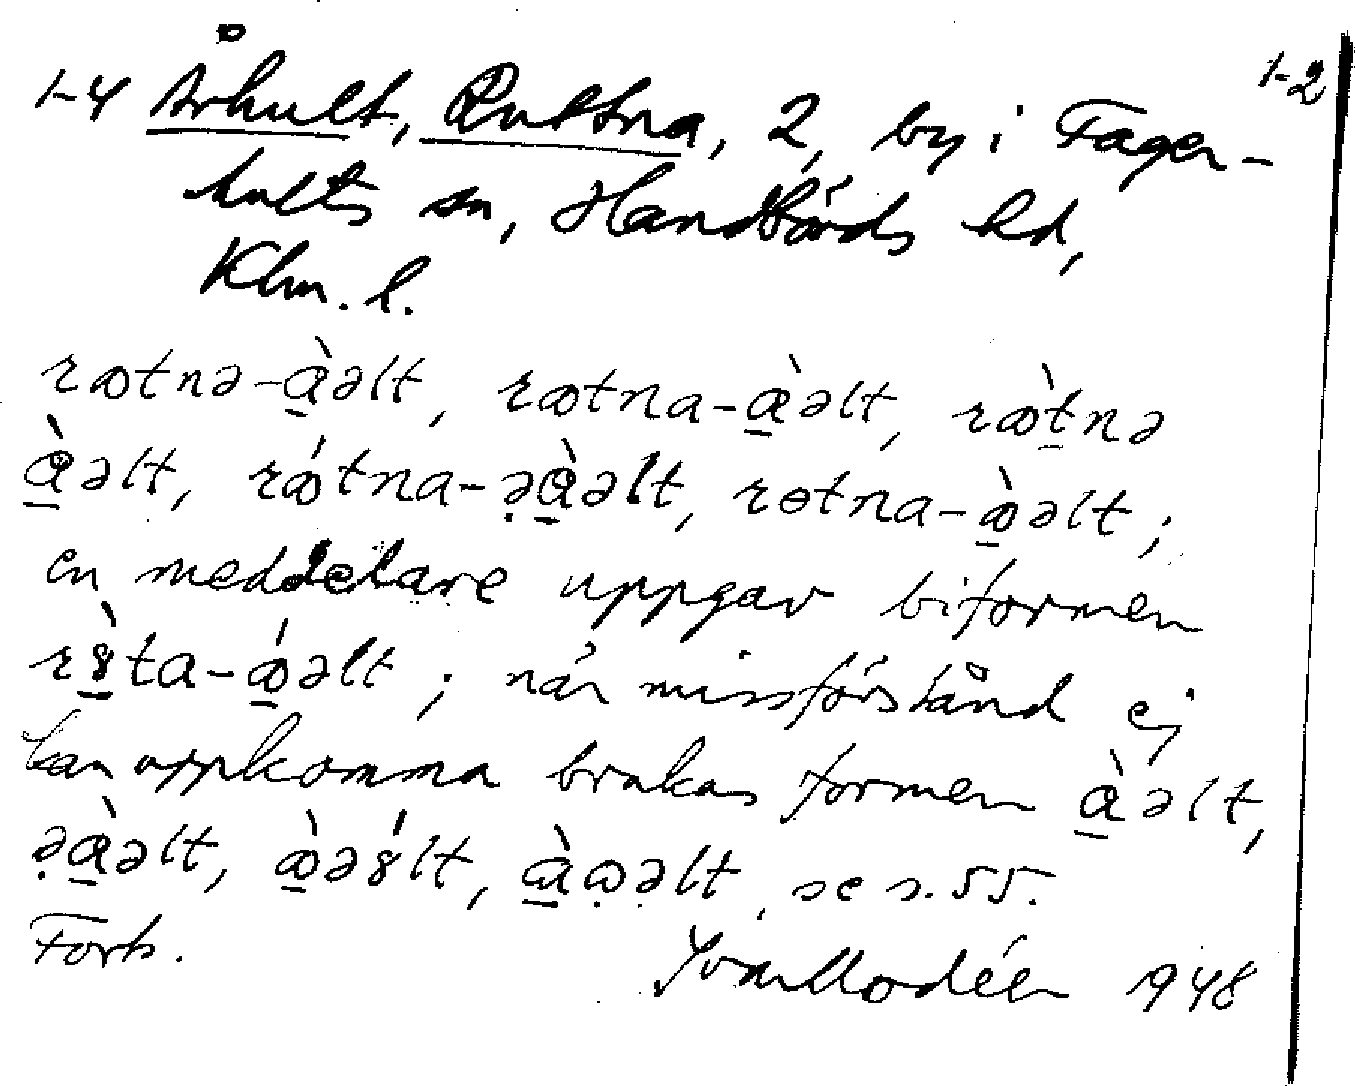 1-2
1-4 Århult, Ruttna, 2, by i Fager-
hults sn, Handbörds hd,
Klm. l.
rætnə-à̱əlt, rætna-æ̱̀əlt, ræ̀tnə
à̱əlt, rǽtna-ə̣à̱əlt, rɵtna-æ̱̀əlt;
en meddelare uppgav biformen
rȣ̱̀ta-ǽ̱əlt; när missförstånd ej
kan uppkomma brukas formen à̱əlt,
ə̣à̱əlt, æ̱̀əȣ́lt, à̱ωə̣lt, se s. 55.
Forts.
Ivar Modéer 1948